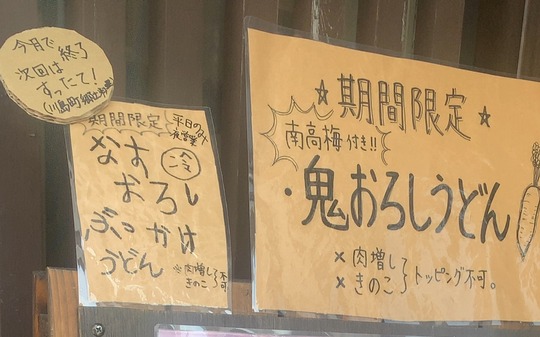 今月で終了
次回は
すったて!
(川島町郷土料理)
期間限定
平日のみ
夜営業
なす
冷
おろし
ぶっかけ
うどん
※肉増し
きのこ
不可
☆期間限定☆
南高梅付き!!
・鬼おろしうどん
×肉増し
×きのこ
トッピング不可。